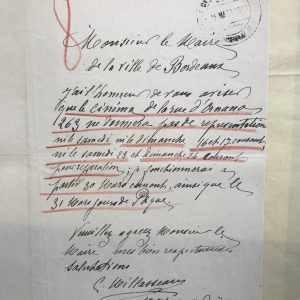 Monsieur le Maire
de la ville de Bordeaux
J'ai l'honneur de vous aviser
que le cinéma de la rue d'Ornano
263 ne donnera pas de représentation
ni le samedi ni le dimanche 16 et 17 courant
ni le samedi 23 et Dimanche 24
pour réparation; je fonctionnerai à
partir 30 Mars courant, ainsi que le
31 Mars jour de Pâque
Veuillez agréer Monsieur le
Maire mes bien respectueuses
salutations